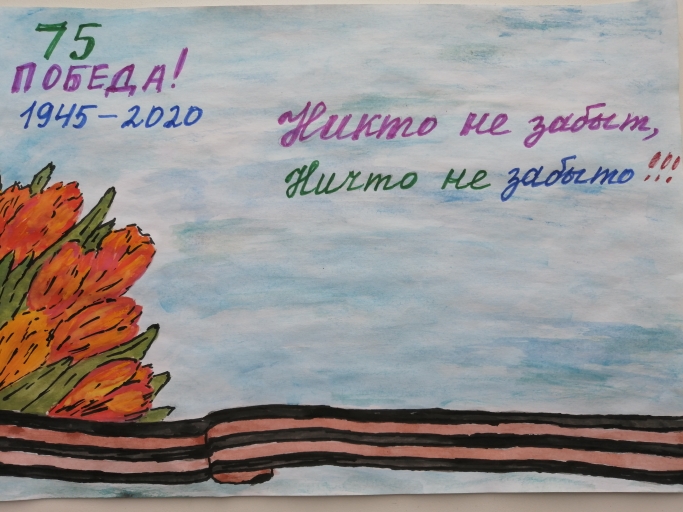 75
ПОБЕДА!
1945-2020
Никто не забыт,
Ничто не забыто!!!